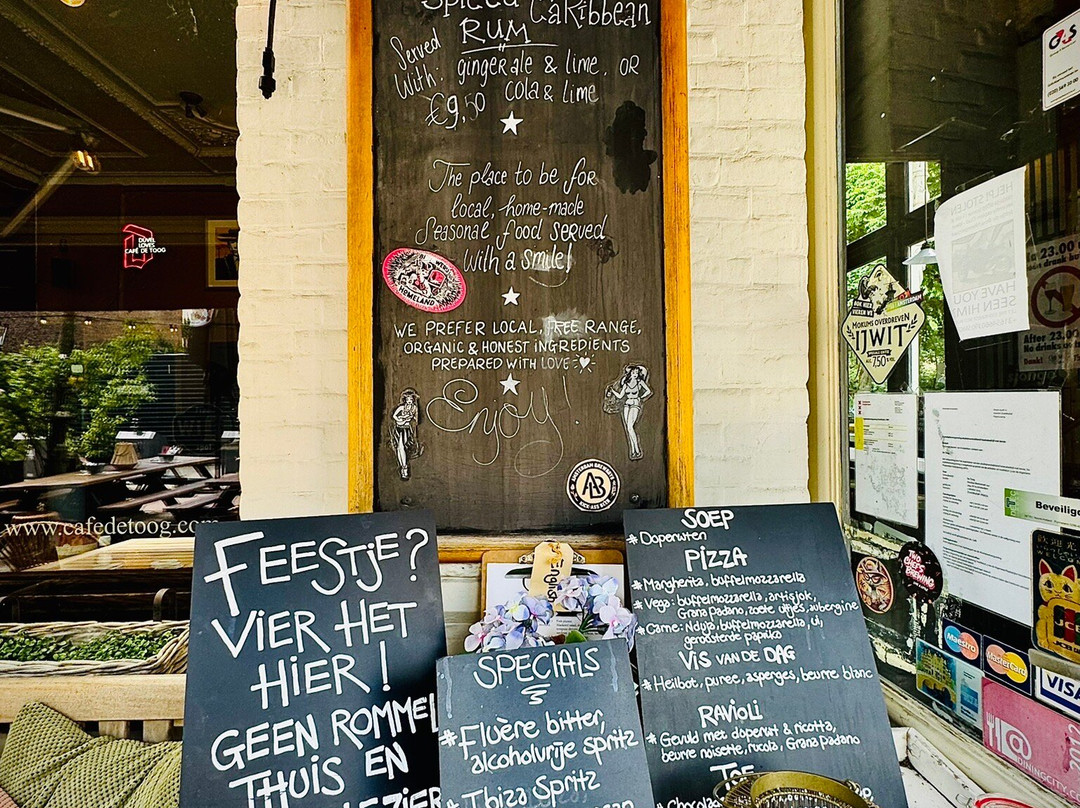 Spiced Caribbean
RUM
Served
With: ginger ale & lime, OR
€9,50 cola & lime
The place to be for
local, home-made
Seasonal food served
with a smile!
HOMELAND
WE PREFER LOCAL, FREE RANGE,
ORGANIC & HONEST INGREDIENTS
PREPARED WITH LOVE
Enjoy!
AB
DUVEL
LOVES
CAFÉ DE TOOG
www.cafedetoog.com
FEESTJE?
VIER HET
HIER!
GEEN ROMMEL
THUIS EN
SPECIALS
* Fluère bitter,
alcoholvrije spritz
* Ibiza Spritz
ENGLISH
SOEP
* Doperwten
PIZZA
* Margherita, buffelmozzarella
* Vega: buffelmozzarella, artisjok,
Grana Padano, zoete uitjes, aubergine
* Carne: Nduja, buffelmozzarella, ui,
geroosterde paprika
VIS VAN DE DAG
* Heilbot, puree, asperges, beurre blanc
RAVIOLI
* Gevuld met doperwt & ricotta,
beurre noisette, rucola, Grana Padano
TOE
* Chocola
G4S
HELP STOLEN
HAVE YOU
SEEN HIM?
23.00
After 23.00
No drinks
MOKUMS OVERDREVEN
'IJWIT'
7.5%
Beveilig
TWO
CHEFS
BREWING
JCB
Maestro
MasterCard
VISA
DININGCITY
2012